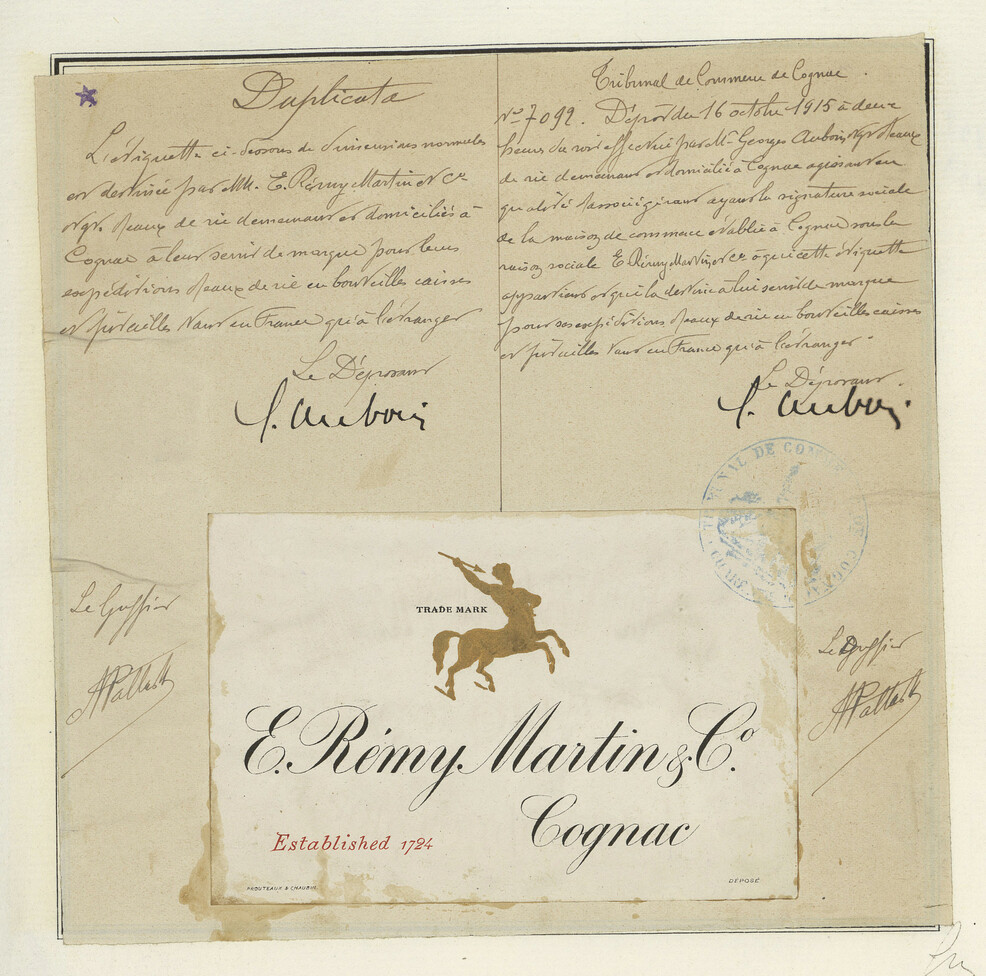 Duplicata
L'étiquette ci-dessous de dimensions normales
est destinée par MM. E. Rémy Martin et Cie
Ngts d'eaux de vie demeurant et domiciliés à
Cognac à leur servir de marque pour leurs
expéditions d'eaux de vie en bouteilles caisses
et futailles tant en France qu'à l'étranger
Le Déposant
G. Auboin
Tribunal de Commerce de Cognac.
No 7092. Dépôt du 16 octobre 1915 à deux
heures du soir effectué par Mr Georges Auboin, Ngt d'eaux
de vie demeurant et domicilié à Cognac agissant en
qualité d'associé gérant ayant la signature sociale
de la maison de commerce établie à Cognac sous la
raison sociale E. Rémy Martin et Ce à qui cette étiquette
appartient et qui la destine à lui servir de marque
pour ses expéditions d'eaux de vie en bouteilles caisses
et futailles tant en France qu'à l'étranger.
Le Déposant.
G. Auboin.
TRIBUNAL DE COMMERCE DE COGNAC
Le Greffier
Le Greffier
TRADE MARK
E. Rémy Martin & Co.
Cognac
Established 1724
PROUTEAUX & CHAUBIN.
DÉPOSÉ